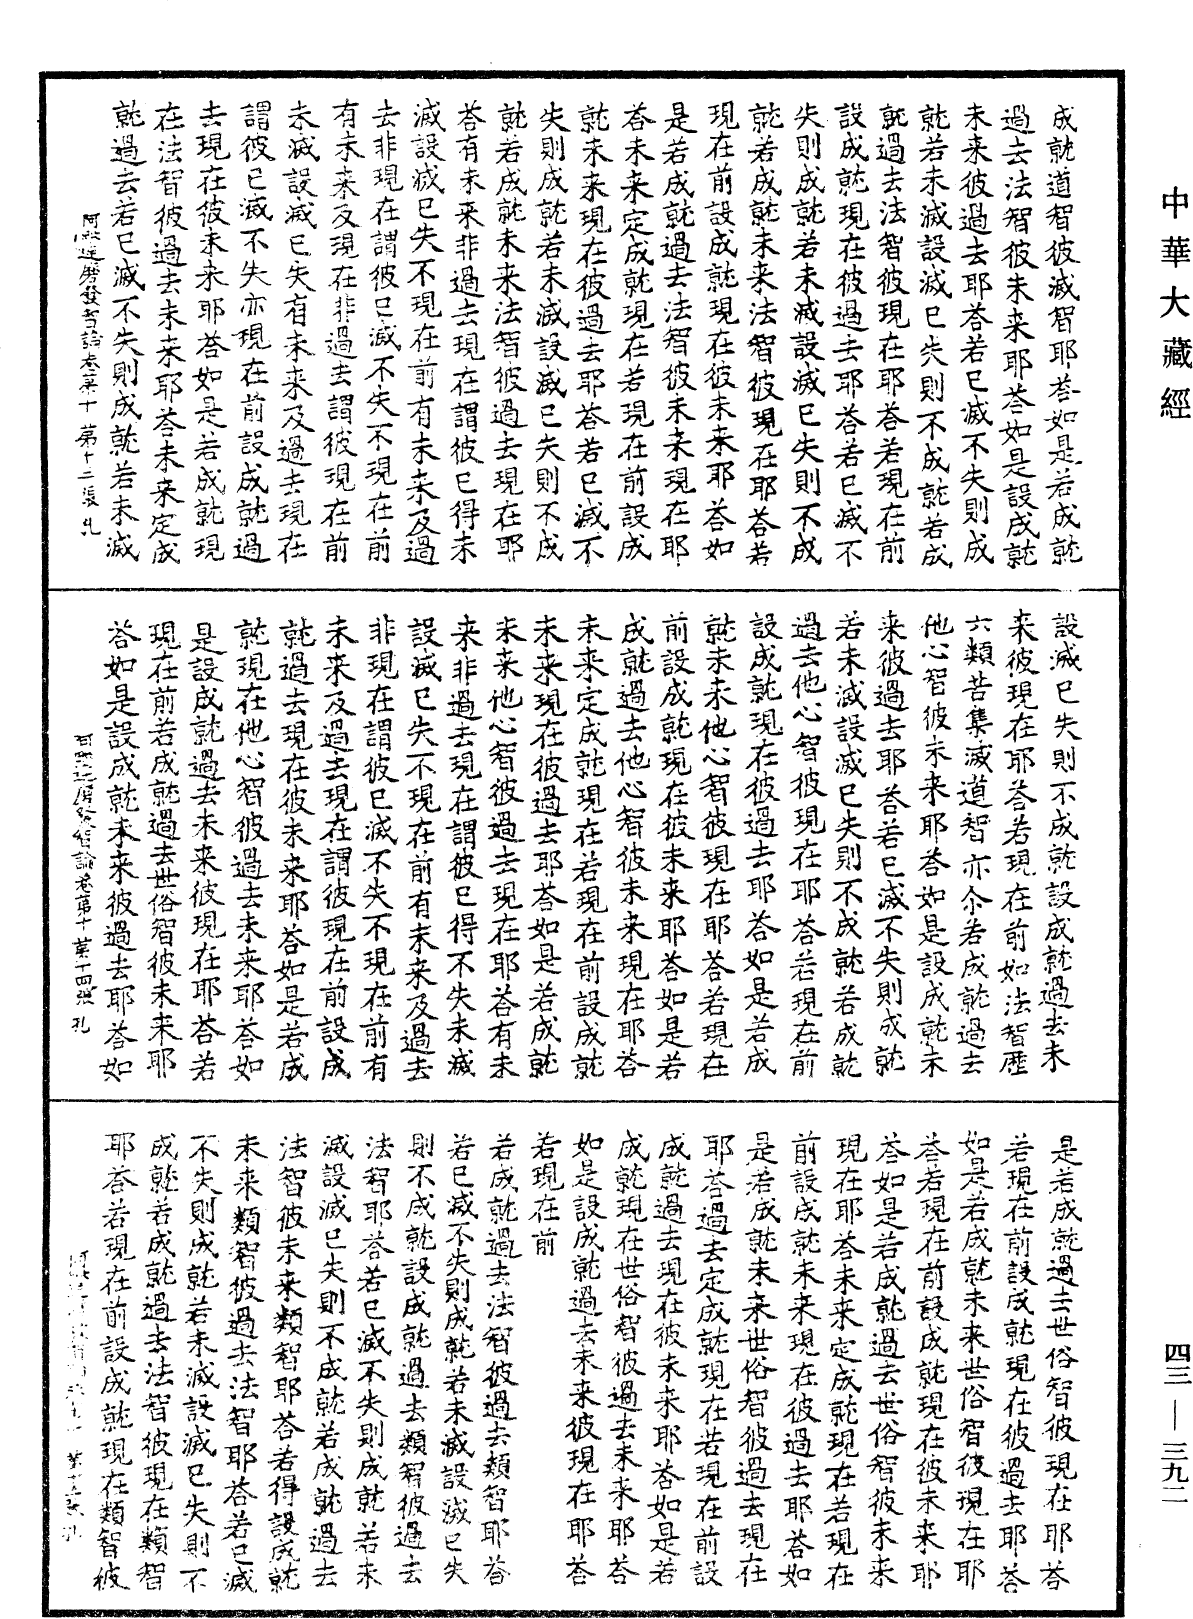 中華大藏經
成就道智彼滅智耶荅如是若成就
過去法智彼未来耶荅如是設成就
未来彼過去耶荅若已滅不失則成
就若未滅設滅已失則不成就若成
就過去法智彼現在耶荅若現在前
設成就現在彼過去耶荅若已滅不
失則成就若未滅設滅已失則不成
就若成就未来法智彼現在耶荅若
現在前設成就現在彼未来耶荅如
是若成就過去法智彼未来現在耶
荅未来定成就現在若現在前設成
就未来現在彼過去耶荅若已滅不
失則成就若未滅設滅已失則不成
就若成就未来法智彼過去現在耶
荅有未来非過去現在謂彼已得未
滅設滅已失不現在前有未来及過
去非現在謂彼已滅不失不現在前
有未来及現在非過去謂彼現在前
未滅設滅已失有未来及過去現在
謂彼已滅不失亦現在前設成就過
去現在彼未来耶荅如是若成就現
在法智彼過去未来耶荅未来定成
就過去若已滅不失則成就若未滅
阿毗達磨發智論卷第十 第十三張 孔
設滅已失則不成就設成就過去未
来彼現在耶荅若現在前如法智歷
六類苦集滅道智亦尒若成就過去
他心智彼未来耶荅如是設成就未
来彼過去耶荅若已滅不失則成就
若未滅設滅已失則不成就若成就
過去他心智彼現在耶荅若現在前
設成就現在彼過去耶荅如是若成
就未来他心智彼現在耶荅若現在
前設成就現在彼未来耶荅如是若
成就過去他心智彼未来現在耶荅
未来定成就現在若現在前設成就
未来現在彼過去耶荅如是若成就
未来他心智彼過去現在耶荅有未
来非過去現在謂彼已得不失未滅
設滅已失不現在前有未来及過去
非現在謂彼已滅不失不現在前有
未来及過去現在謂彼現在前設成
就過去現在彼未来耶荅如是若成
就現在他心智彼過去未来耶荅如
是設成就過去未来彼現在耶荅若
現在前若成就過去世俗智彼未来耶
荅如是設成就未来彼過去耶荅如
阿毗達磨發智論卷第十 第十四張 孔
是若成就過去世俗智彼現在耶荅
若現在前設成就現在彼過去耶荅
如是若成就未来世俗智彼現在耶
荅若現在前設成就現在彼未来耶
荅如是若成就過去世俗智彼未来
現在耶荅未来定成就現在若現在
前設成就未来現在彼過去耶荅如
是若成就未来世俗智彼過去現在
耶荅過去定成就現在若現在前設
成就過去現在彼未来耶荅如是若
成就現在世俗智彼過去未来耶荅
如是設成就過去未来彼現在耶荅
若現在前
若成就過去法智彼過去類智耶荅
若已滅不失則成就若未滅設滅已失
則不成就設成就過去類智彼過去
法智耶荅若已滅不失則成就若未
滅設滅已失則不成就若成就過去
法智彼未来類智耶荅若得設成就
未来類智彼過去法智耶荅若已滅
不失則成就若未滅設滅已失則不
成就若成就過去法智彼現在類智
耶荅若現在前設成就現在類智彼
四三—三九二